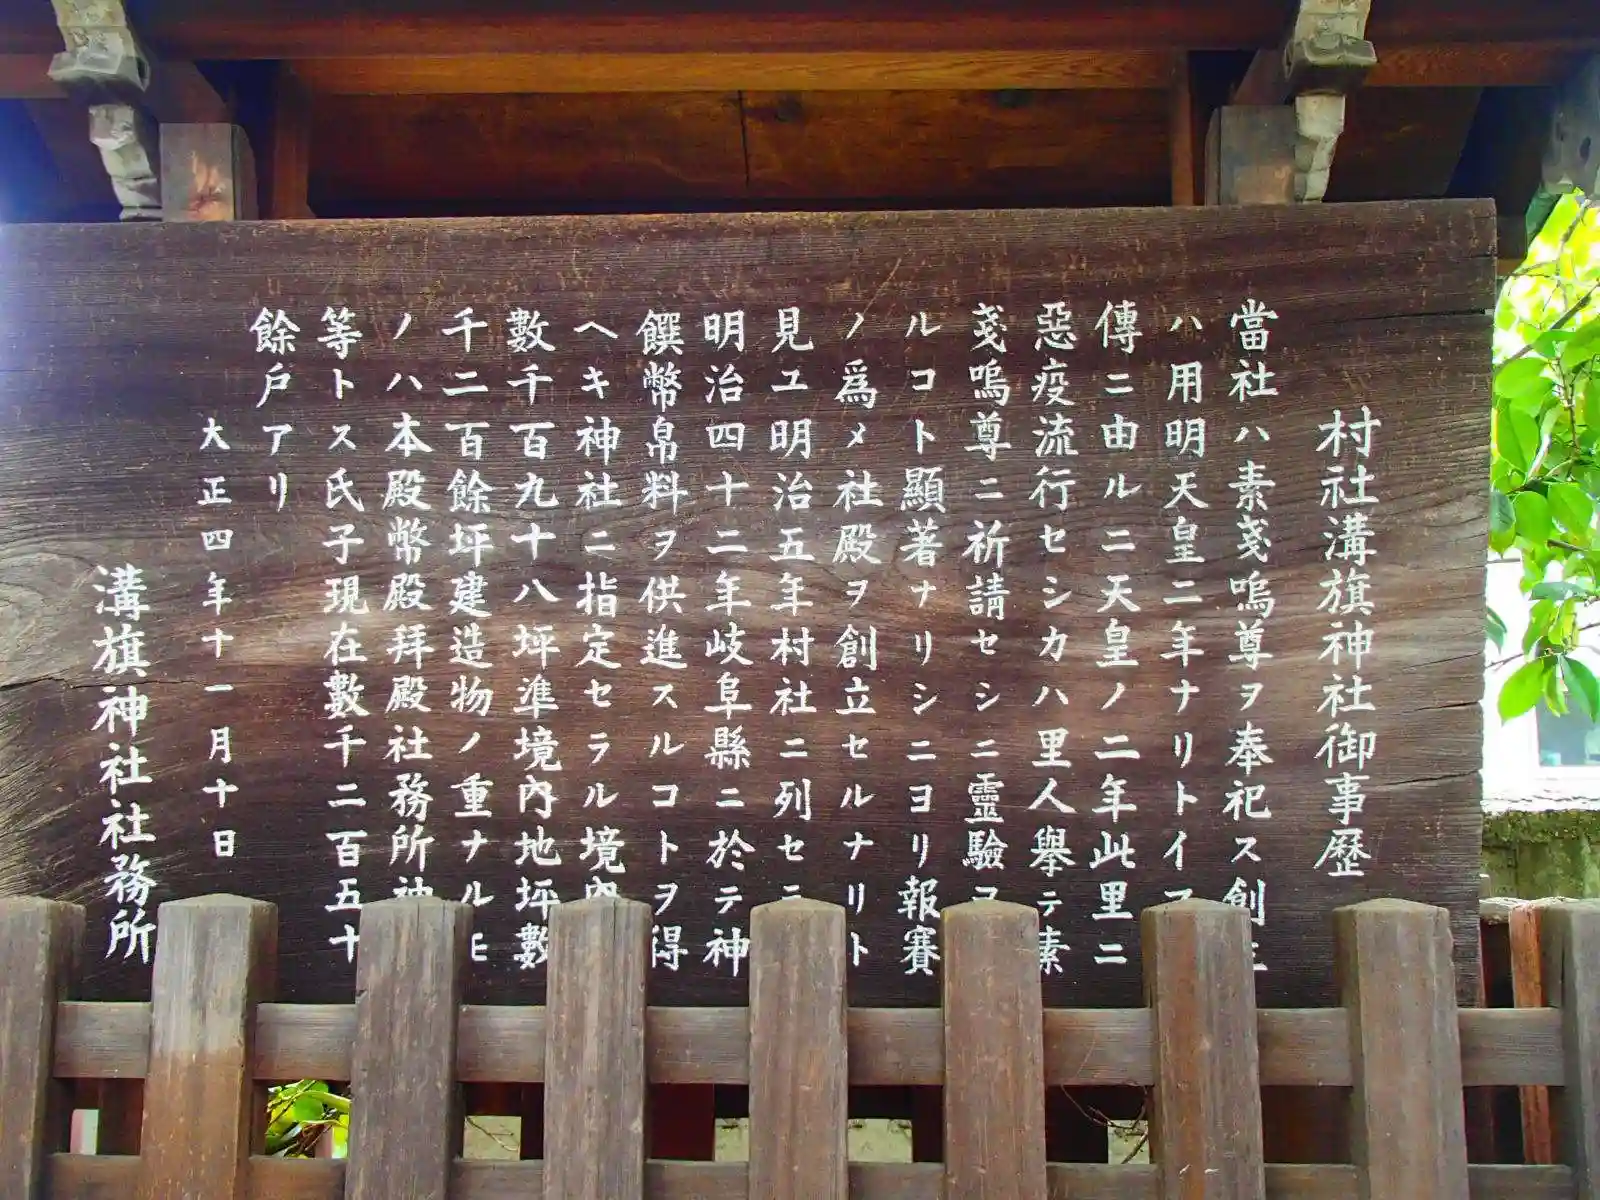 村社溝旗神社御事歴
當社ハ素戔嗚尊ヲ奉祀ス創立
ハ用明天皇二年ナリトイフ
傳ニ由ルニ天皇ノ二年此里ニ
惡疫流行セシカハ里人擧テ素
戔嗚尊ニ祈請セシニ靈驗ヲ
ルコト顯著ナリシニヨリ報賽
ノ爲メ社殿ヲ創立セルナリト
見ユ明治五年村社ニ列セラ
明治四十二年岐阜縣ニ於テ神
饌幣帛料ヲ供進スルコトヲ得
ヘキ神社ニ指定セラル境內
數千百九十八坪準境內地坪數
千二百餘坪建造物ノ重ナルモ
ノハ本殿幣殿拜殿社務所神
等トス氏子現在數千二百五十
餘戶アリ
大正四年十一月十日
溝旗神社社務所